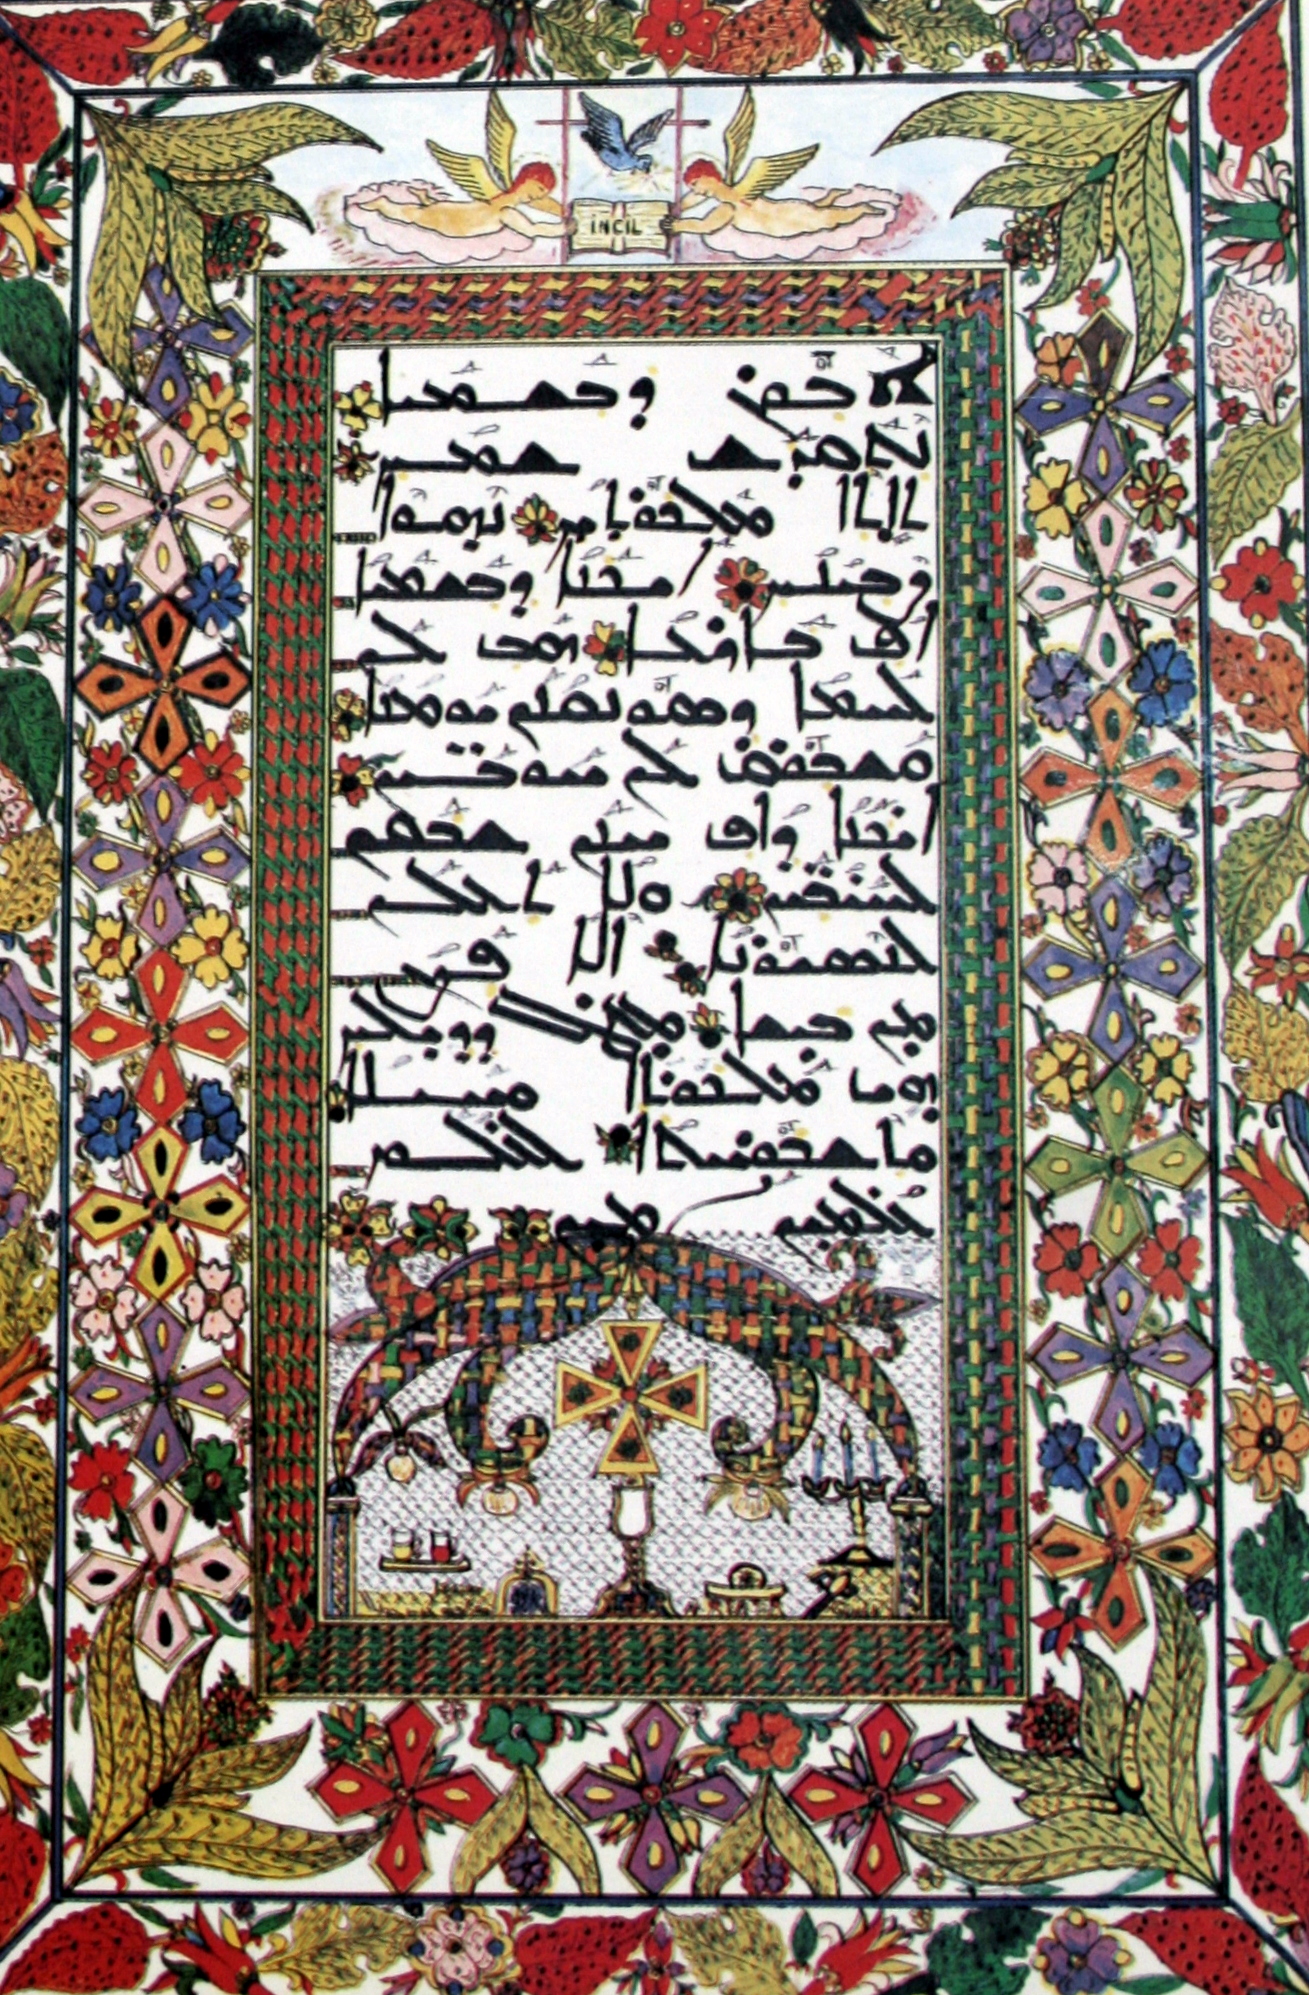 İNCİL
ܐܒܘܢ ܕܒܫܡܝܐ
ܢܬܩܕܫ ܫܡܟ
ܬܐܬܐ ܡܠܟܘܬܟ ܢܗܘܐ
ܨܒܝܢܟ ܐܝܟܢܐ ܕܒܫܡܝܐ
ܐܦ ܒܐܪܥܐ ܗܒ ܠܢ
ܠܚܡܐ ܕܣܘܢܩܢܢ ܝܘܡܢܐ
ܘܫܒܘܩ ܠܢ ܚܘܒܝܢ
ܐܝܟܢܐ ܕܐܦ ܚܢܢ ܫܒܩܢ
ܠܚܝܒܝܢ ܘܠܐ ܬܥܠܢ
ܠܢܣܝܘܢܐ ܐܠܐ ܦܨܢ
ܡܢ ܒܝܫܐ ܡܛܠ ܕܕܝܠܟ
ܗܝ ܡܠܟܘܬܐ ܘܚܝܠܐ
ܘܬܫܒܘܚܬܐ ܠܥܠܡ
ܥܠܡܝܢ ܐܡܝܢ